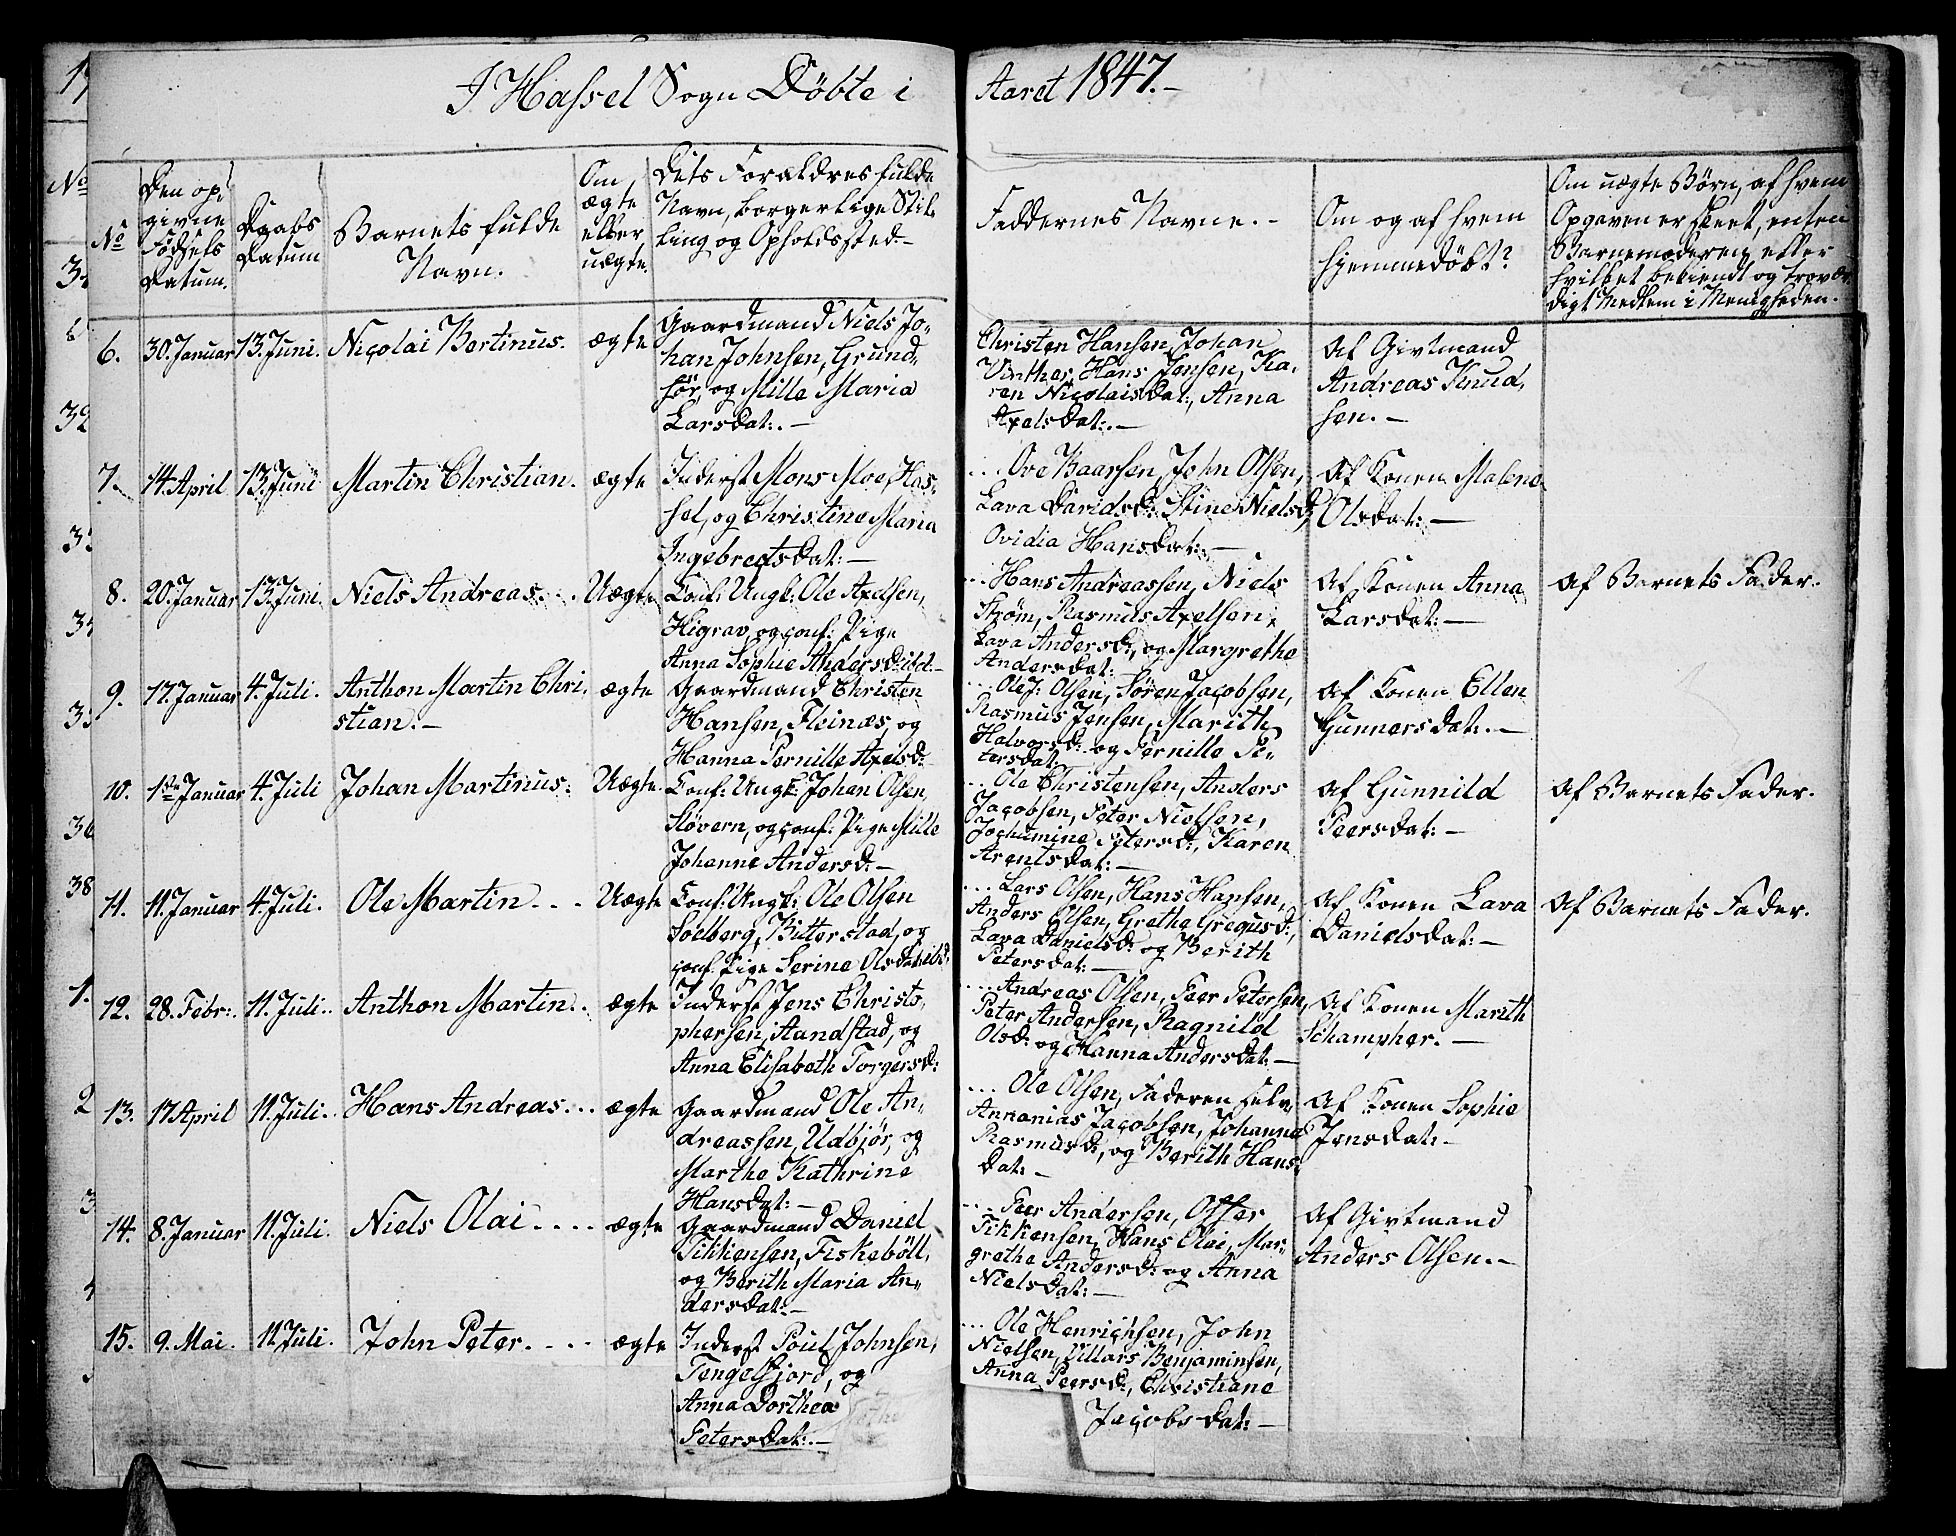 I Hassel Sogn Döbte i Aaret 1847.-
No
Den op-
givne
Födsels
Datum.
Daabs
Datum
Barnets fulde
Navn.
Om
ægte
eller
uægte.
Dets Foraldres fulde
Navn, borgerlige Stil-
ling og Opholdssted.-
Faddernes Navne.-
Om og af hvem
hjemmedöbt?
Om uægte Börn, af hvem
Opgaven er skeet, enten
Barnemoderen, eller
hvilket bekiendt og trovær-
digt Medlem i Menigheden.
6. 30. Januar 13. Juni. Nicolai Bertinus. ægte
Gaardmand Niels Jo-
han Johnsen, Grund-
för, og Mille Maria
Larsdat:.-
Christen Hansen, Johan
Vinther, Hans Jensen, Ka-
ren Nicolaisdat:, Anna
Axelsdat:.-
Af Givtmand
Andreas Knud-
sen.-
7. 14 April 13. Juni Martin Christian. ægte
Inderst Mons Moe, Has-
sel, og Christine Maria
Ingebregtsdat:-
... Ove Baarsen, John Olsen,
Lava Davidsd: Stine Nielsd:,
Ovidia Hansdat:-
Af Konen Malena
Olsdat:-
8. 20. Januar 13. Juni. Niels Andreas... Uægte
Conf: Ungk: Ole Axelsen,
Higrav, og conf: Pige
Anna Sophie Andersd: ibd:-
... Hans Andreassen, Niels
Ström, Rasmus Axelsen,
Lava Andersd:, og Margrethe
Andersdat:
Af Konen Anna
Larsdat:-
Af Barnets Fader.
9. 17. Januar 4. Juli. Anthon Martin Chri-
stian.- ægte
Gaardmand Christen
Hansen, Fleinæs, og
Hanna Pernille Axelsd:
... Ole J: Olsen, Sören Jacobsen,
Rasmus Jensen, Marith
Halvorsd: og Pernille Pe-
tersdat:
Af Konen Ellen
Gunnersdat:.-
10. 1ste Januar 4. Juli Johan Martinus. Uægte.
Conf: Ungk: Johan Olsen,
Slövern, og conf: Pige Mille
Johanne Andersd:-
... Ole Christensen, Anders
Jacobsen, Peter Nielsen,
Jochumine Petersd:, Karen
Arentsdat:-
Af Gunnild
Peersdat:-
Af Barnets Fader.
11. 11. Januar 4. Juli. Ole Martin... Uægte
Conf: Ungk: Ole Olsen
Solberg, Bitterstad, og
conf: Pige Serine Olsdat: ibd:
... Lars Olsen, Hans Hansen,
Anders Olsen, Grethe Gregusd:,
Lava Danielsd: og Berith
Petersdat:-
Af Konen Lava
Danielsdat:-
Af Barnets Fader.
12. 28. Febr:. 11. Juli. Anthon Martin.. ægte
Inderst Jens Christo-
phersen, Sandstad, og
Anna Elisabeth Torgersd:
... Andreas Olsen, Peer Petersen,
Peter Andersen, Ragnild
Olsd: og Hanna Andersdat:-
Af Konen Marith
Schampher.-
13. 17 April 11. Juli. Hans Andreas... ægte
Gaardmand Ole An-
dreassen, Udbjör, og
Marthe Kathrine
Hansdat:-
... Ole Olsen, Faderen selv,
Annanias Jacobsen, Johanna
Rasmusd:, og Berith Hans-
dat:-
Af Konen Sophie
Jensdat:-
14. 8. Januar 11. Juli. Niels Olai.... ægte
Gaardmand Daniel
Tikkensen, Fiskeböll,
og Berith Maria An-
dersdat:-
... Peer Andersen, Offer
Tikkensen, Hans Olai, Mar-
grethe Andersd: og Anna
Nielsdat:-
Af Givtmand
Anders Olsen.-
15. 9. Mai. 11. Juli. John Peter.... ægte
Inderst Poul Johnsen,
Tengelfjord, og
Anna Dorthea
Petersdat:.-
... Ole Henrichsen, John
Nielsen, Villars Benjaminsen,
Anna Peersd:, Christiane
Jacobsdat:-